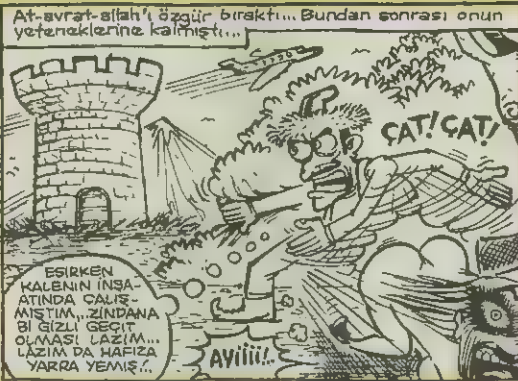 At-avrat-silah'ı özgür bıraktı... Bundan sonrası onun
yeteneklerine kalmıştı...
ÇAT! ÇAT!
ESİRKEN
KALENİN İNŞA-
ATINDA ÇALIŞ-
MIŞTIM... ZİNDANA
Bİ GİZLİ GEÇİT
OLMASI LAZIM...
LAZIM DA HAFIZA
YARRA YEMİŞ!..
AYİİİİ!..